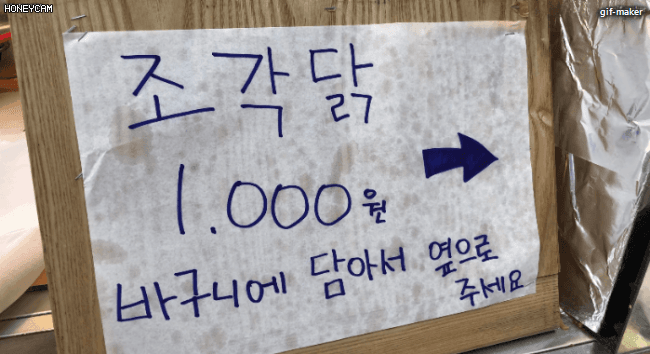 HONEYCAM
gif-maker
조각닭
1.000원
바구니에 담아서 옆으로
주세요